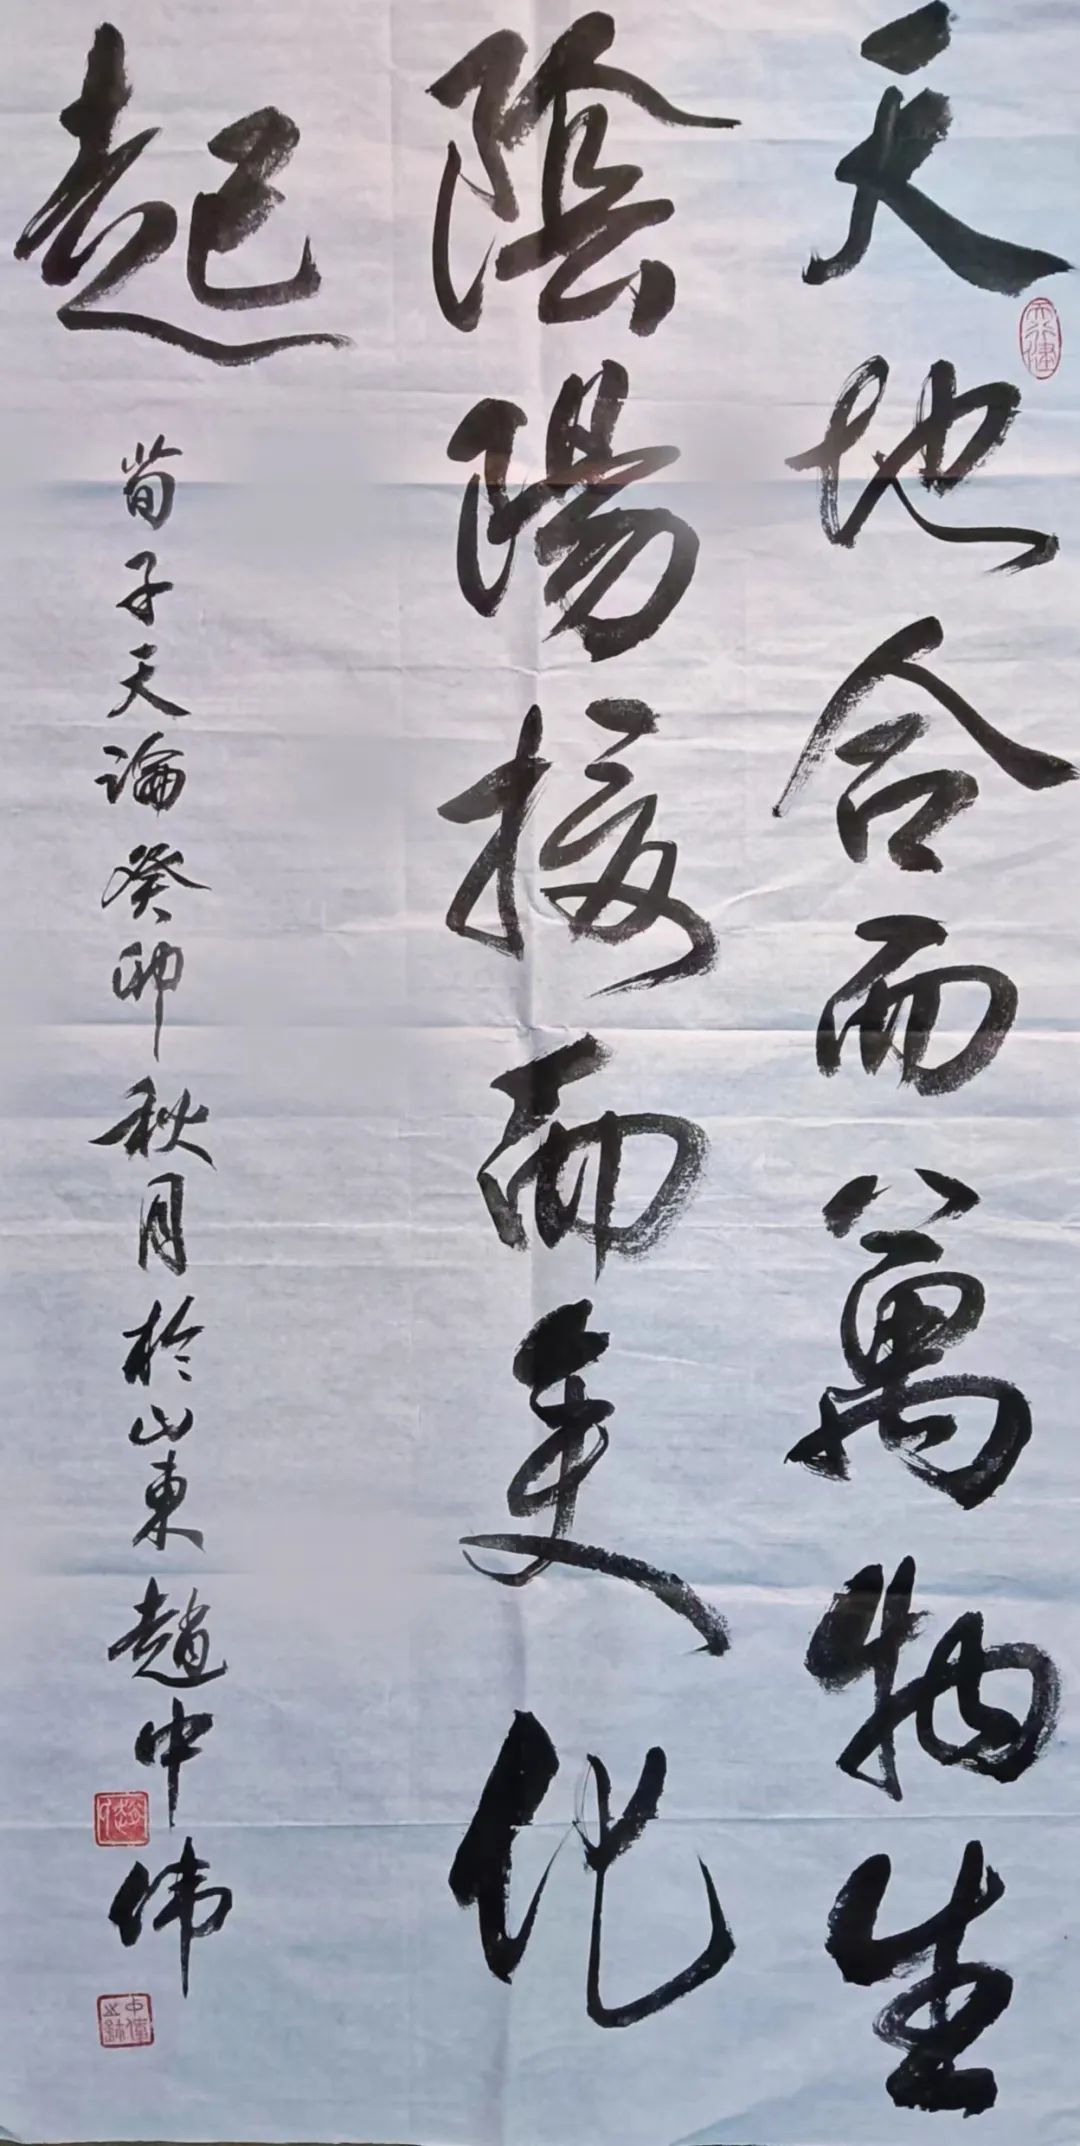 天地合而萬物生
陰陽接而变化
起
荀子天論癸卯秋月於山東趙中伟
天行健